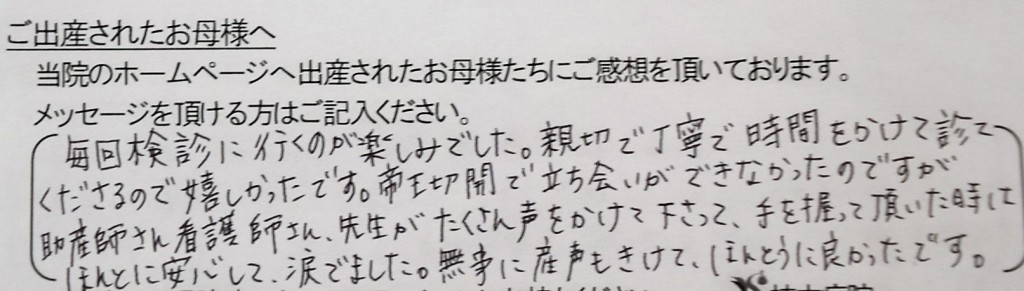 ご出産されたお母様へ
当院のホームページへ出産されたお母様たちにご感想を頂いております。
メッセージを頂ける方はご記入ください。
毎回検診に行くのが楽しみでした。親切で丁寧で時間をかけて診て
くださるので嬉しかったです。帝王切開で立ち会いができなかったのですが
助産師さん看護師さん、先生がたくさん声をかけて下さって、手を握って頂いた時は
ほんとに安心して、涙でました。無事に産声もきけて、ほんとうに良かったです。